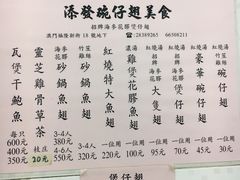 添發碗仔翅美食
招牌海參花膠煲仔翅
澳門福隆新街18號地下
☎:28389265 66508211
瓦煲干鮑魚
每只
600元
400元
350元
靈芝雞骨草茶
枝庄
20元
海參花膠
砂鍋魚翅
3-4人
680元
550元
竹笙雞絲
砂鍋魚翅
3-4人
380元
320元
紅燒特大魚翅
一位用
220元
濃雞湯
花膠魚翅
一位用
100元
紅燒雞絲
大隻翅
一位用
95元
紅燒雞絲
豪華碗仔翅
一位用
70元
紅燒雞絲
碗仔翅
一位用
45元
30元
煲仔翅